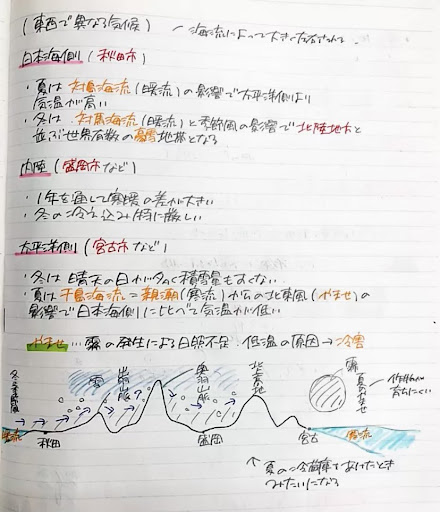 (東西で異なる気候)
海流によって大きく左右されて
日本海側(秋田市)
・夏は対馬海流(暖流)の影響で太平洋側より
気温が高い
・冬は、対馬海流(暖流)と季節風の影響で北陸地方と
並ぶ世界有数の豪雪地帯となる
内陸(盛岡市など)
・1年を通して寒暖の差が大きい
・冬の冷え込み特に厳しい
太平洋側(宮古市など)
・冬は晴天の日が多く積雪量も少ない
・夏は千島海流=親潮(寒流)からの北東風(やませ)の
影響で日本海側に比べて気温が低い
やませ…霧の発生による日照不足、低温の原因→冷害
冬季節風
雪
出羽山脈
奥羽山脈
北上高地
霧
夏やませ
作物が
育ちにくい
暖流
秋田
盛岡
宮古
寒流
↑夏の冷蔵庫をあけたとき
みたいになる